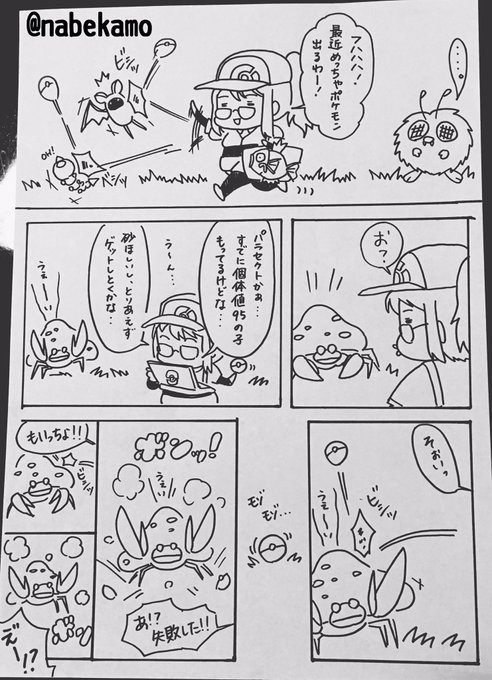 @nabekamo
‥‥。
フハハハ！
最近めっちゃポケモン
出るわー！
ビシッ
OH!
ベシッ
お？
パラセクトかぁ…
すでに個体値95の子
もってるけどな…
う〜ん…
砂ほしいし、とりあえず
ゲットしとくかな‥
うぇー
そおいっ
ビシッ
うぇー
モゾ
モゾ…
ボンッ！
うぇー
あ！？
失敗した！！
もいっちょ！！
ビシッ
ボン
えー！？